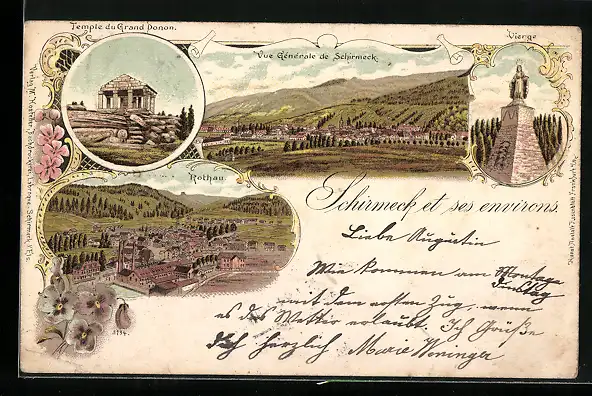 Temple du Grand Donon.
Vue Générale de Schirmeck.
Vierge
Rothau.
Schirmeck et ses environs.
Liebe Augustin
Wir kommen am Montage
Dinstag
mit dem ersten Zug, wenn
es das Wetter erlaubt. Ich Grüße
Dich herzlich Marie Weninger